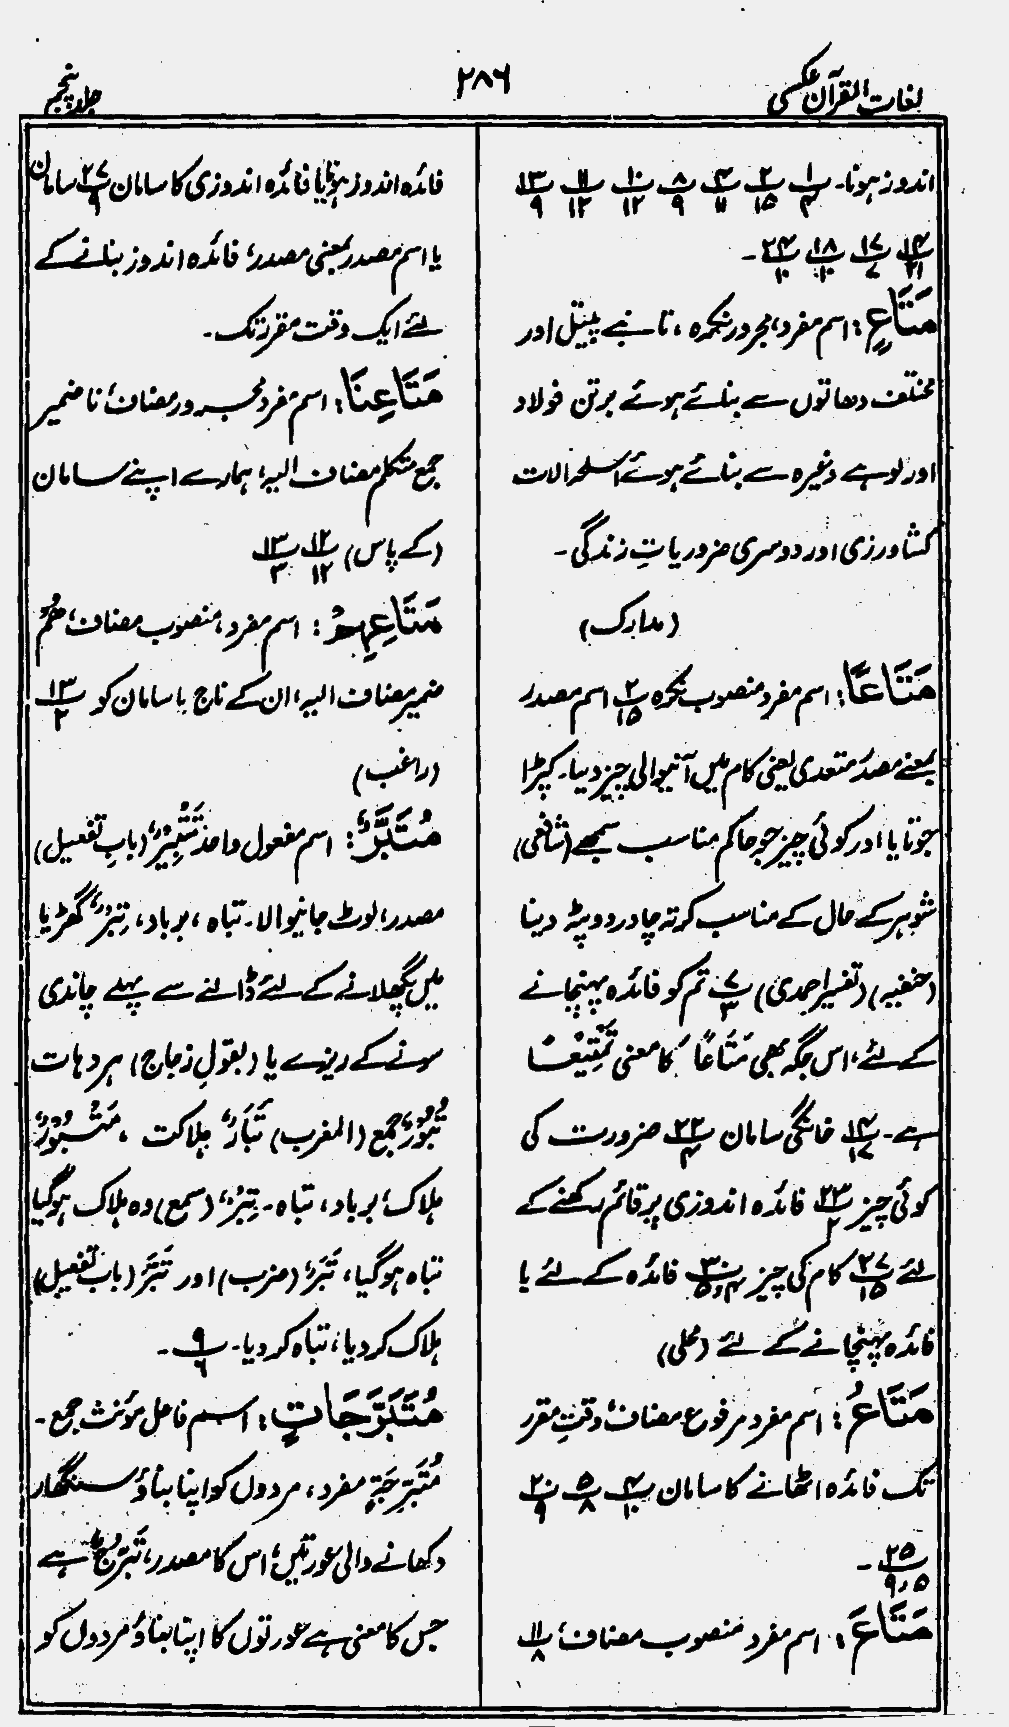 لغات القرآن عکسی
۲۸۶
جلد پنجم
اندوز ہونا۔ پ۱/۴ پ۲/۱۵ پ۴/۱۱ پ۸/۹ پ۱۰/۱۲ پ۱۱/۱۲ پ۱۳/۹
پ۱۴/۲۱ پ۱۷/۷ پ۱۸/۱۰ پ۲۴/۱۰ ۔
مَتَاعٍ : اسم مفرد، مجرور نکرہ، تانبے پیتل اور
مختلف دھاتوں سے بنائے ہوئے برتن فولاد
اور لوہے وغیرہ سے بنائے ہوئے اسلحہ آلات
کشاورزی اور دوسری ضروریاتِ زندگی۔
(مدارک)
مَتَاعًا : اسم مفرد منصوب نکرہ پ۲/۱۵ اسم مصدر
بمعنے مصدر متعدی یعنی کام میں آنیوالی چیز دینا۔ کپڑا
جوتا یا اور کوئی چیز جو حاکم مناسب سمجھے (شافعی)
شوہر کے حال کے مناسب کرتہ چادر دوپٹہ دینا
(حنفیہ) (تفسیر احمدی) پ۷/۳ تم کو فائدہ پہنچانے
کے لئے، اس جگہ بھی مَتَاعًا کا معنی تَمْتِیْعًا
ہے۔ پ۱۴/۱۷ خانگی سامان پ۲۲/۴ ضرورت کی
کوئی چیز پ۲۳/۲ فائدہ اندوزی پر قائم رکھنے کے
لئے پ۲۷/۱۵ کام کی چیز پ۳۰/۴،۵ فائدہ کے لئے یا
فائدہ پہنچانے کے لئے (محلی)
مَتَاعُ : اسم مفرد مرفوع مضاف، وقتِ مقرر
تک فائدہ اٹھانے کا سامان پ۴/۱۰ پ۵/۸ پ۲۰/۹
پ۲۵/۵،۹ ۔
مَتَاعَ : اسم مفرد منصوب مضاف، پ۱۱/۸
فائدہ اندوز ہونا یا فائدہ اندوزی کا سامان پ۲۷/۹ سامان
یا اسم مصدر بمعنی مصدر، فائدہ اندوز بنانے کے
لئے ایک وقت مقرر تک۔
مَتَاعِنَا : اسم مفرد مجرور مضاف، نا ضمیر
جمع متکلم مضاف الیہ، ہمارے اپنے سامان
(کے پاس) پ۱۲/۱۲ پ۱۳/۳
مَتَاعِهِمْ : اسم مفرد، منصوب مضاف، هُمْ
ضمیر مضاف الیہ، ان کے ناج یا سامان کو پ۱۳/۲
(راغب)
مُتَبَّرٌ : اسم مفعول واحد تَتْبِیْرٌ (بابِ تفعیل)
مصدر، ٹوٹ جانیوالا۔ تباہ، برباد، تِبْرٌ گھڑیا
میں پگھلانے کے لئے ڈالنے سے پہلے چاندی
سونے کے ریزے یا (بقولِ زجاج) ہر دھات
تُبُوْرٌ جمع (المغرب) تَبَارٌ ہلاکت، مَتْبُوْرٌ
ہلاک، برباد، تباہ۔ تَبِرَ (سمع) وہ ہلاک ہوگیا
تباہ ہوگیا، تَبَرَ (ضرب) اور تَبَّرَ (باب تفعیل)
ہلاک کردیا، تباہ کردیا۔ پ۹/۶ ۔
مُتَبَرِّجَاتٍ : اسم فاعل مؤنث جمع۔
مُتَبَرِّجَۃٍ مفرد، مردوں کو اپنا بناؤ سنگھار
دکھانے والی عورتیں، اس کا مصدر، تَبَرُّجٌ ہے
جس کا معنی ہے عورتوں کا اپنا بناؤ مردوں کو